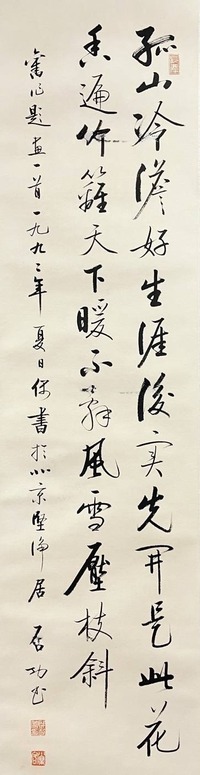 孤山冷澹好生涯後实先開是此花
香遍竹籬天下暖不辞風雪壓枝斜
舊作題畫一首一九九二年夏日偶書於北京堅净居 启功